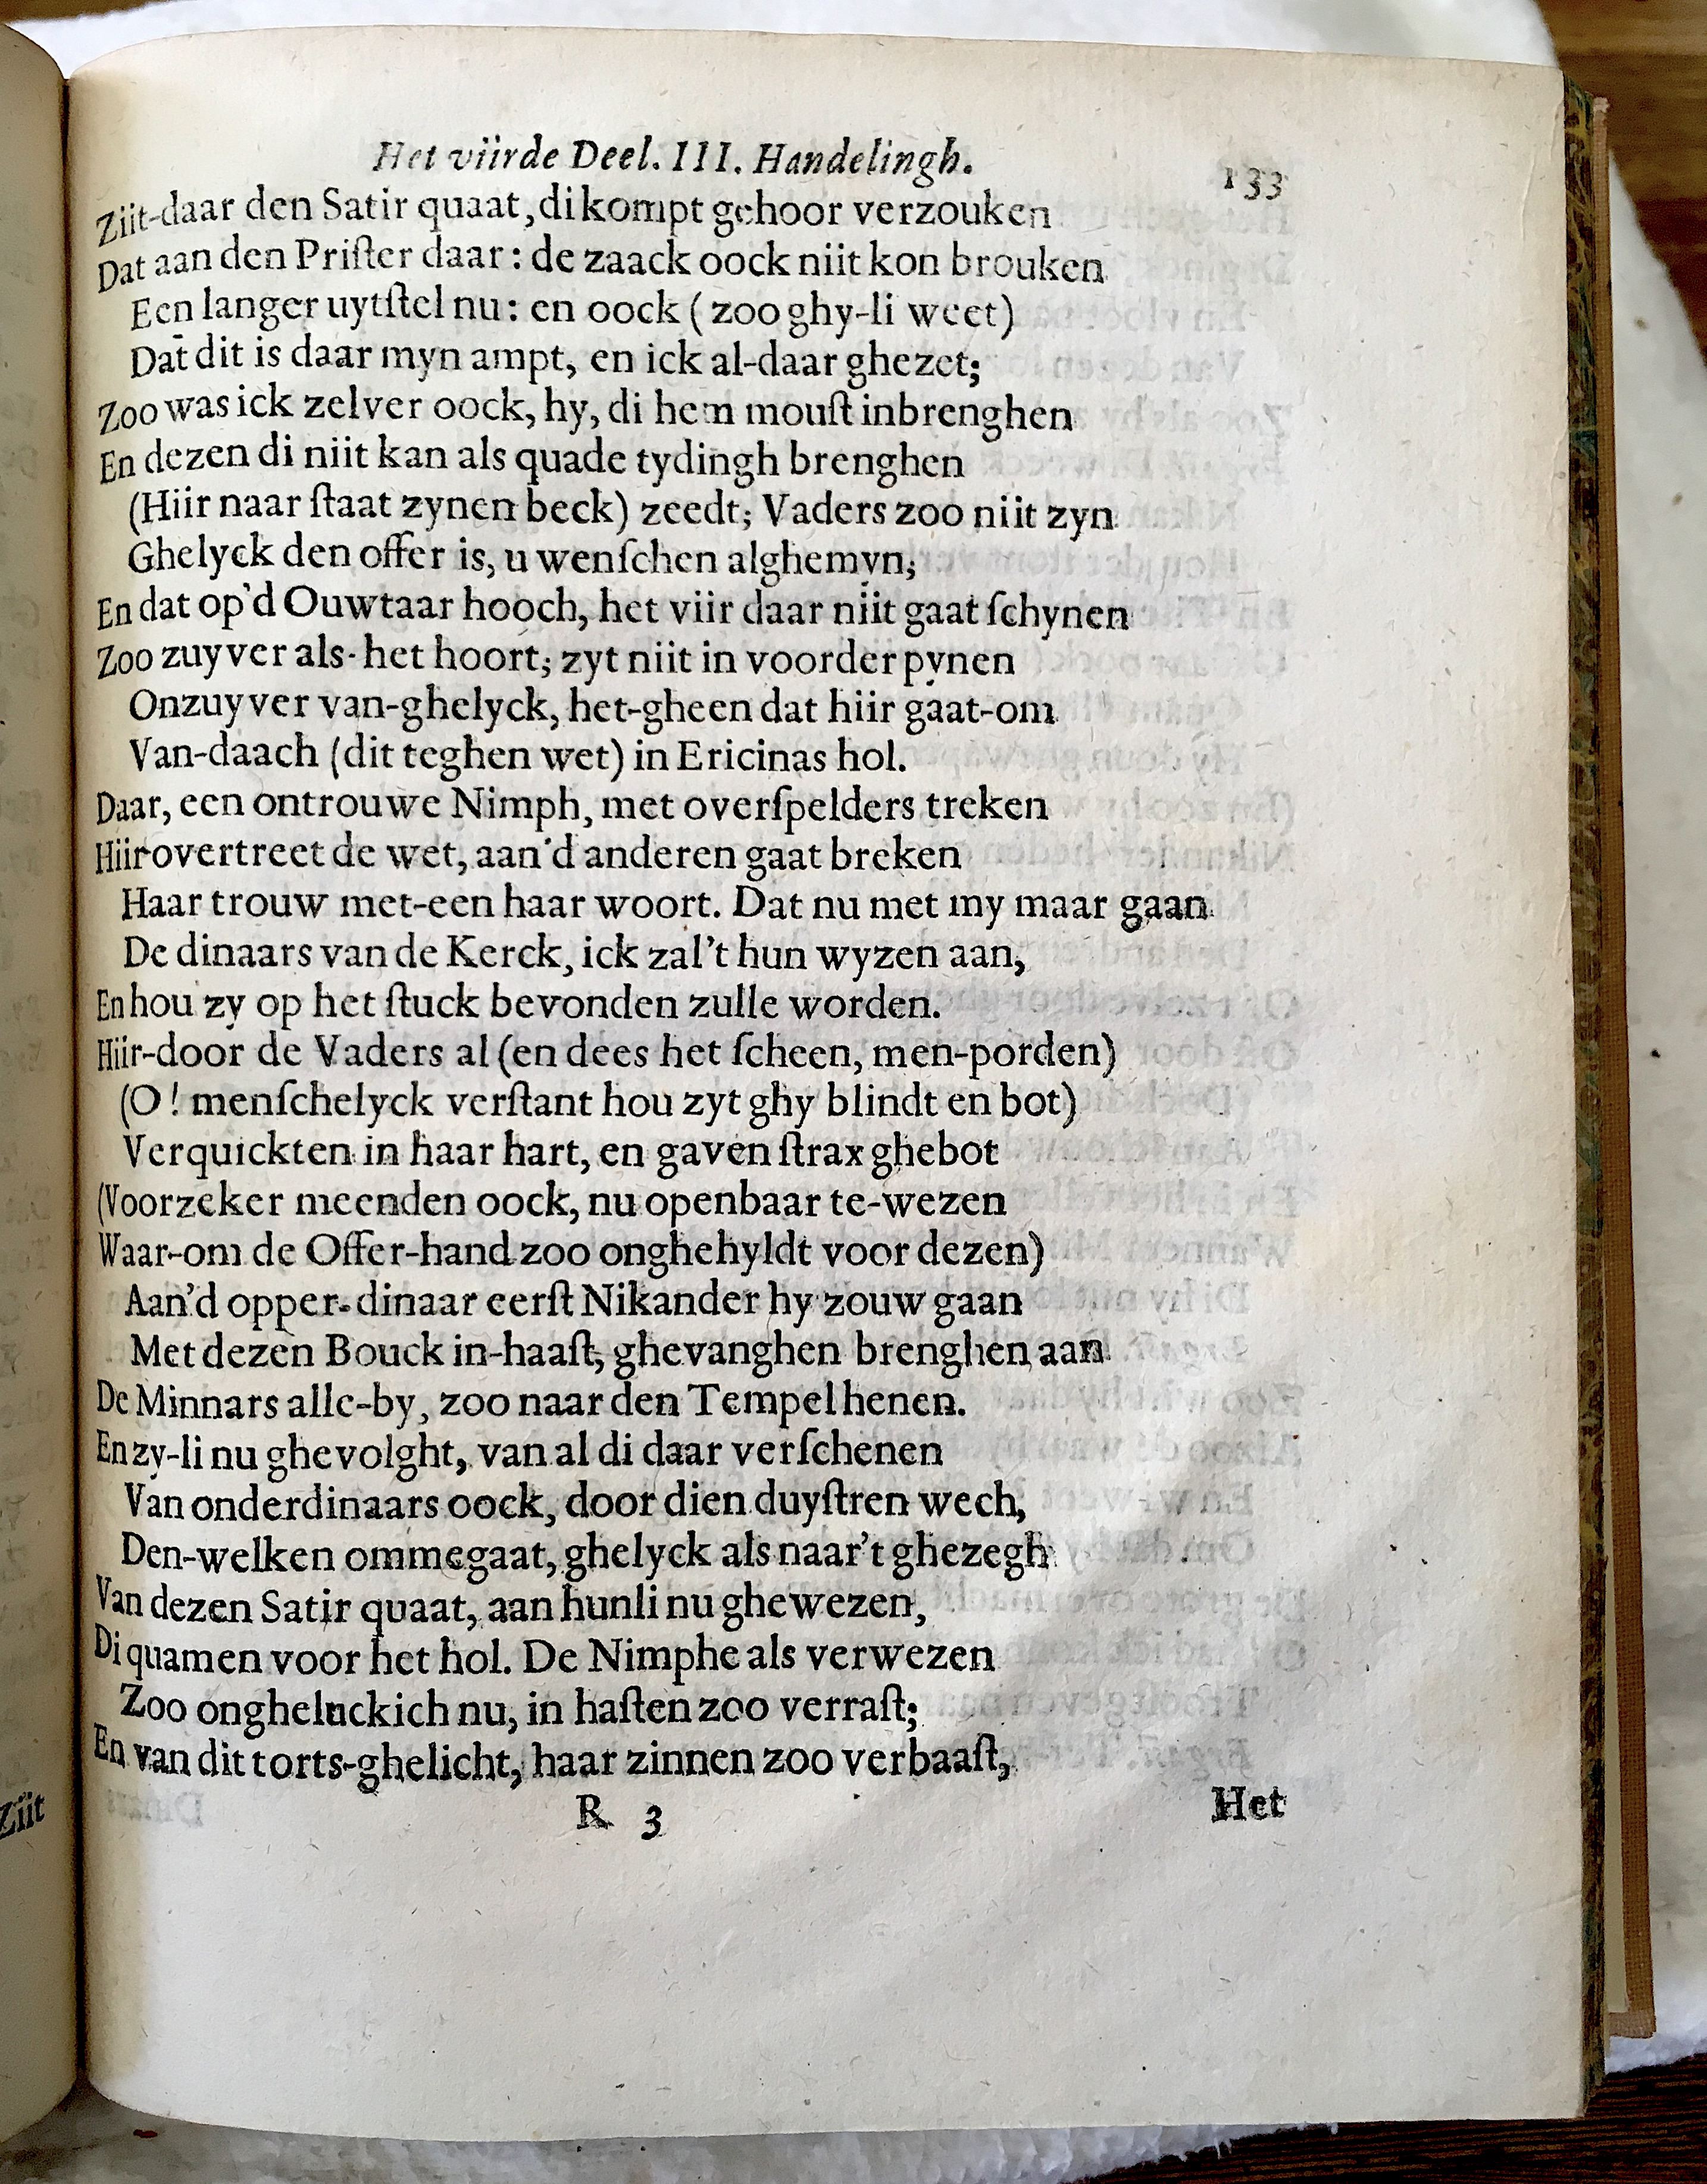 Het viirde Deel. III. Handelingh. 133
Ziit-daar den Satir quaat, di kompt gehoor verzouken
Dat aan den Priſter daar: de zaack oock niit kon brouken
Een langer uytſtel nu: en oock ( zoo ghy-li weet)
Dat dit is daar myn ampt, en ick al-daar ghezet;
Zoo was ick zelver oock, hy, di hem mouſt inbrenghen
En dezen di niit kan als quade tydingh brenghen
(Hiir naar ſtaat zynen beck) zeedt; Vaders zoo niit zyn
Ghelyck den offer is, u wenſchen alghemyn;
En dat op'd Ouwtaar hooch, het viir daar niit gaat ſchynen
Zoo zuyver als-het hoort; zyt niit in voorder pynen
Onzuyver van-ghelyck, het-gheen dat hiir gaat-om
Van-daach (dit teghen wet) in Ericinas hol.
Daar, een ontrouwe Nimph, met overſpelders treken
Hiir overtreet de wet, aan'd anderen gaat breken
Haar trouw met-een haar woort. Dat nu met my maar gaan
De dinaars van de Kerck, ick zal't hun wyzen aan,
En hou zy op het ſtuck bevonden zulle worden.
Hiir-door de Vaders al (en dees het ſcheen, men-porden)
(O! menſchelyck verſtant hou zyt ghy blindt en bot)
Verquickten in haar hart, en gaven ſtrax ghebot
(Voorzeker meenden oock, nu openbaar te-wezen
Waar-om de Offer-hand zoo onghehyldt voor dezen)
Aan'd opper-dinaar eerſt Nikander hy zouw gaan
Met dezen Bouck in-haaſt, ghevanghen brenghen aan
De Minnars alle-by, zoo naar den Tempel henen.
En zy-li nu ghevolght, van al di daar verſchenen
Van onderdinaars oock, door dien duyſtren wech,
Den-welken ommegaat, ghelyck als naar't ghezegh
Van dezen Satir quaat, aan hunli nu ghewezen,
Di quamen voor het hol. De Nimphe als verwezen
Zoo ongheluckich nu, in haſten zoo verraſt;
En van dit torts-ghelicht, haar zinnen zoo verbaaſt,
R 3 Het
Ziit